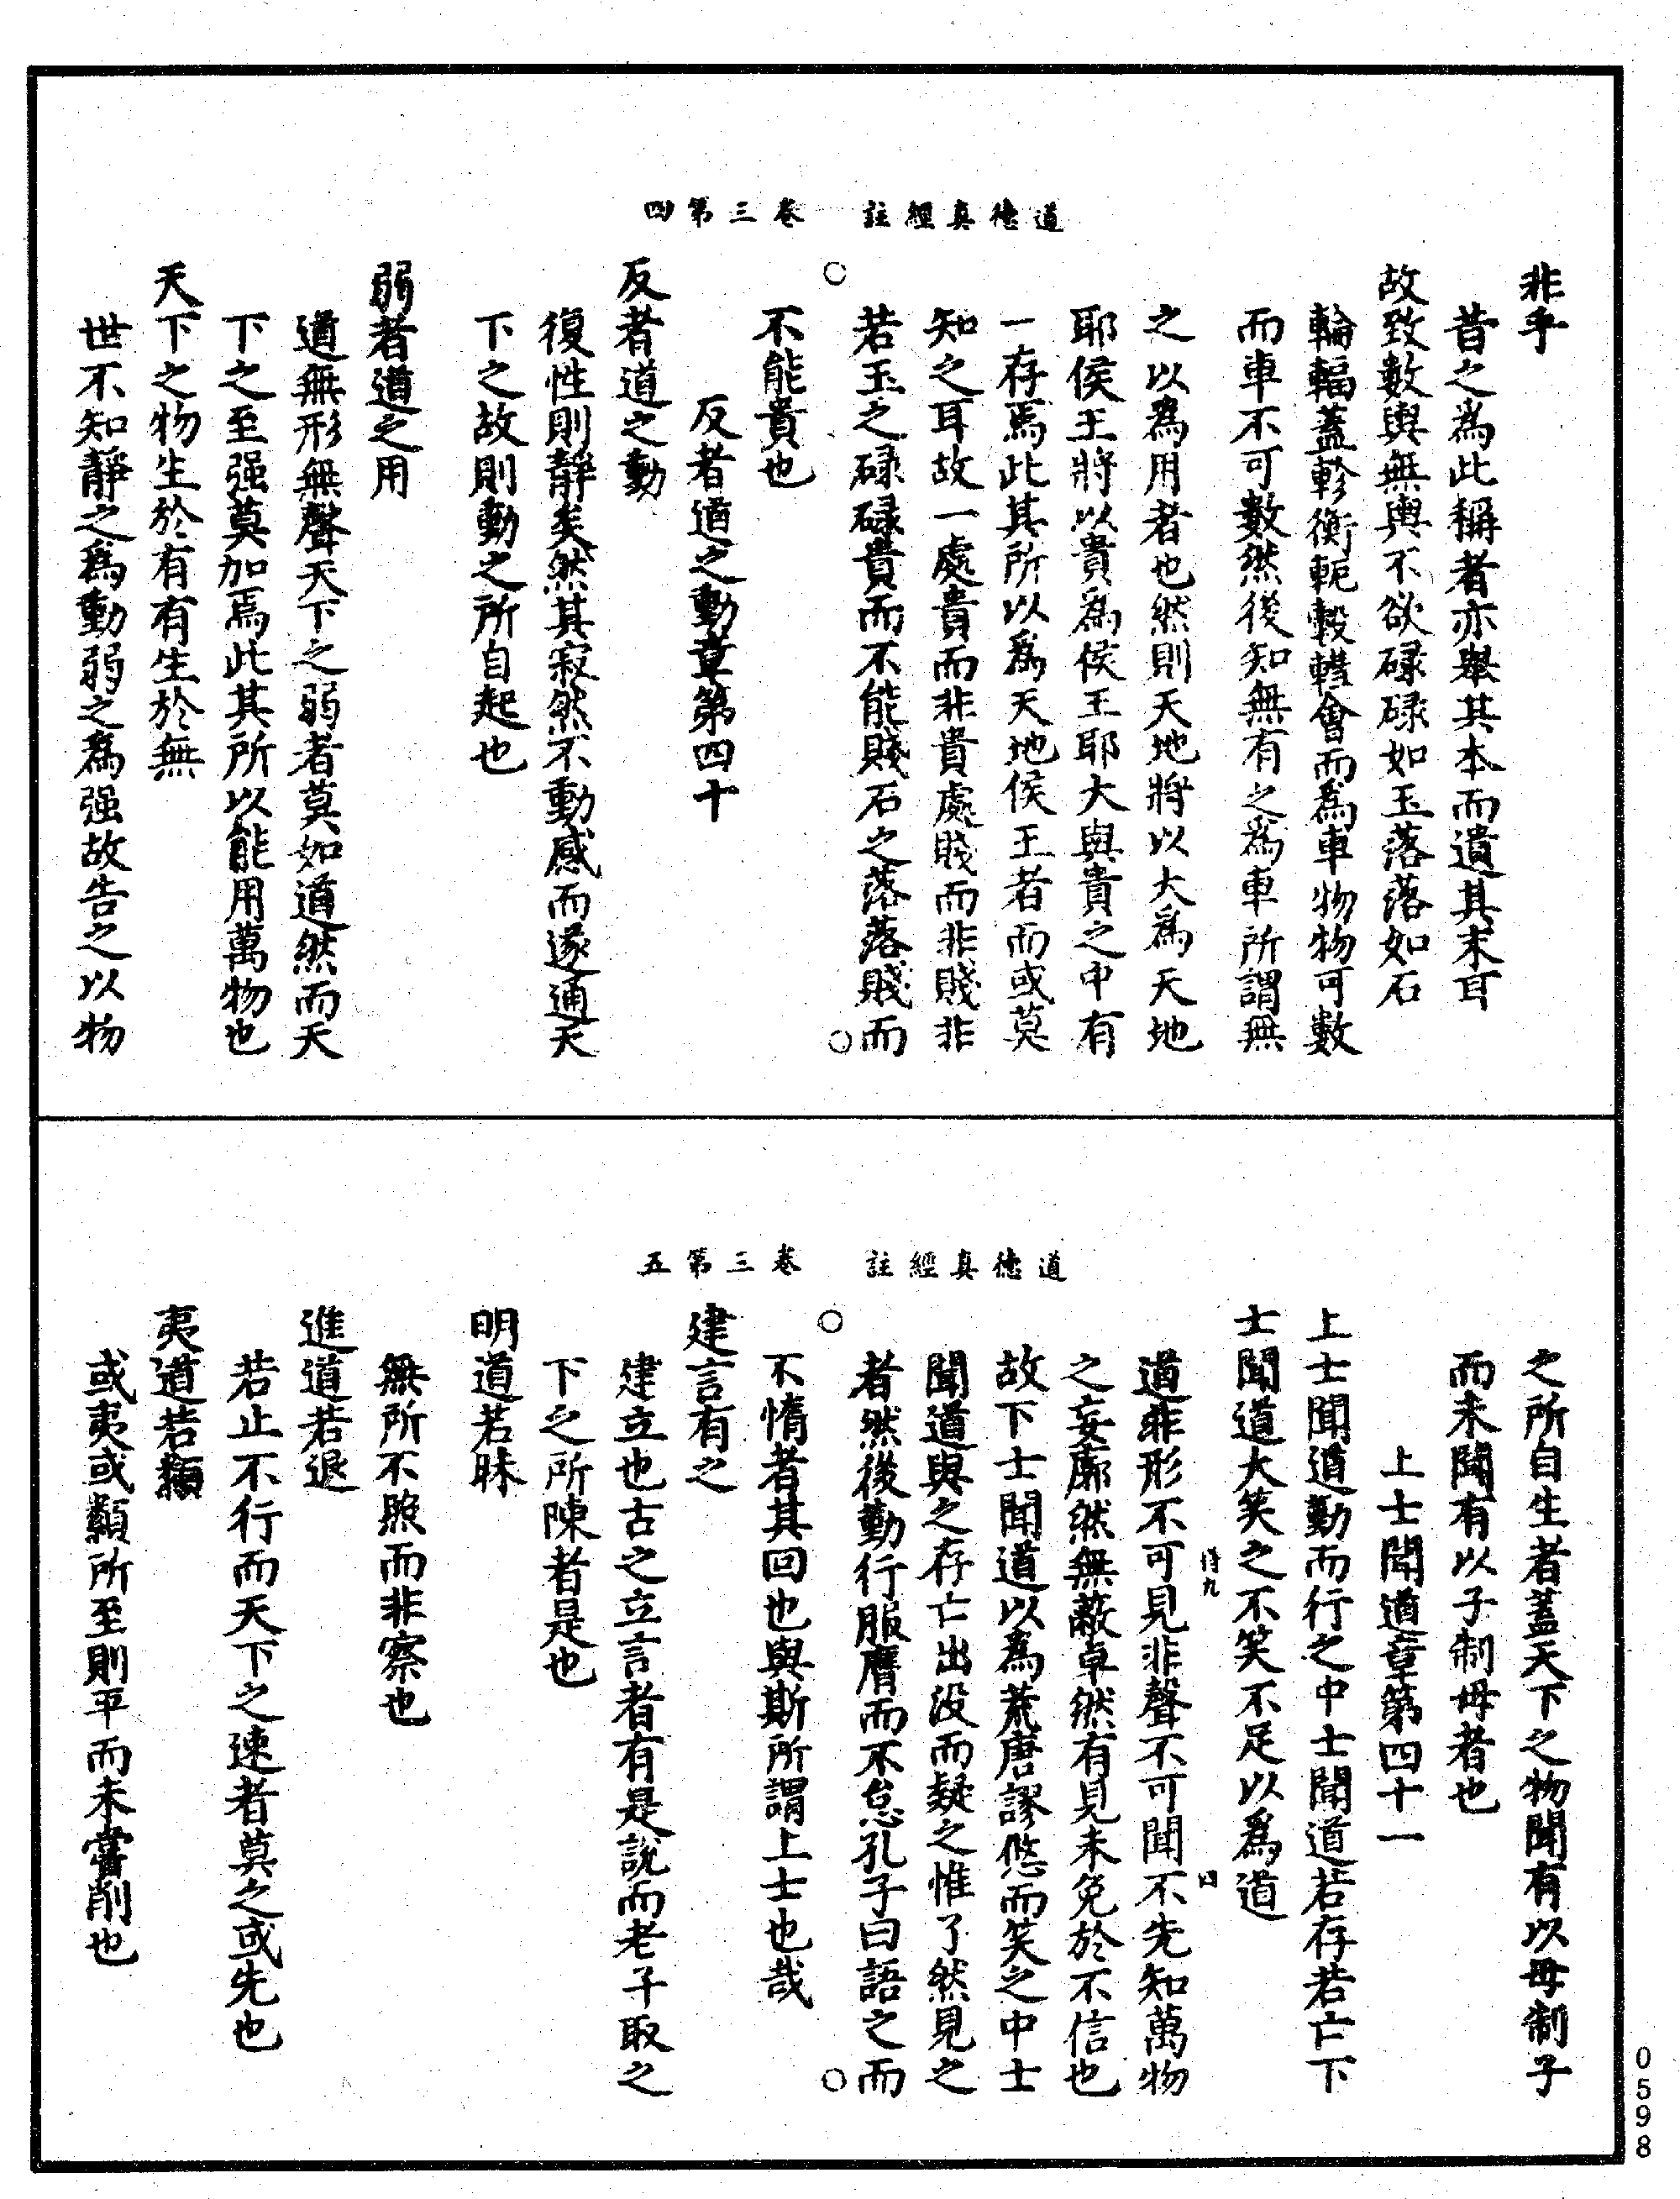 道德真經註　卷三第四
非乎
昔之爲此稱者亦舉其本而遺其末耳
故致數輿無輿不欲碌碌如玉落落如石
輪輻蓋軫衡軛轂轊會而爲車物物可數
而車不可數然後知無有之爲車所謂無
之以爲用者也然則天地將以大爲天地
耶侯王將以貴爲侯王耶大與貴之中有
一存焉此其所以爲天地侯王者而或莫
知之耳故一處貴而非貴處賤而非賤非
若玉之碌碌貴而不能賤石之落落賤而
不能貴也
反者道之動章第四十
反者道之動
復性則靜矣然其寂然不動感而遂通天
下之故則動之所自起也
弱者道之用
道無形無聲天下之弱者莫如道然而天
下之至强莫加焉此其所以能用萬物也
天下之物生於有有生於無
世不知靜之爲動弱之爲强故告之以物
道德真經註　卷三第五
之所自生者蓋天下之物聞有以母制子
而未聞有以子制母者也
上士聞道章第四十一
上士聞道勤而行之中士聞道若存若亡下
士聞道大笑之不笑不足以爲道
道非形不可見非聲不可聞不先知萬物
之妄廓然無蔽卓然有見未免於不信也
故下士聞道以爲荒唐謬悠而笑之中士
聞道與之存亡出没而疑之惟了然見之
者然後勤行服膺而不怠孔子曰語之而
不惰者其回也與斯所謂上士也哉
建言有之
建立也古之立言者有是說而老子取之
下之所陳者是也
明道若昧
無所不照而非察也
進道若退
若止不行而天下之速者莫之或先也
夷道若纇
或夷或纇所至則平而未嘗削也
0598